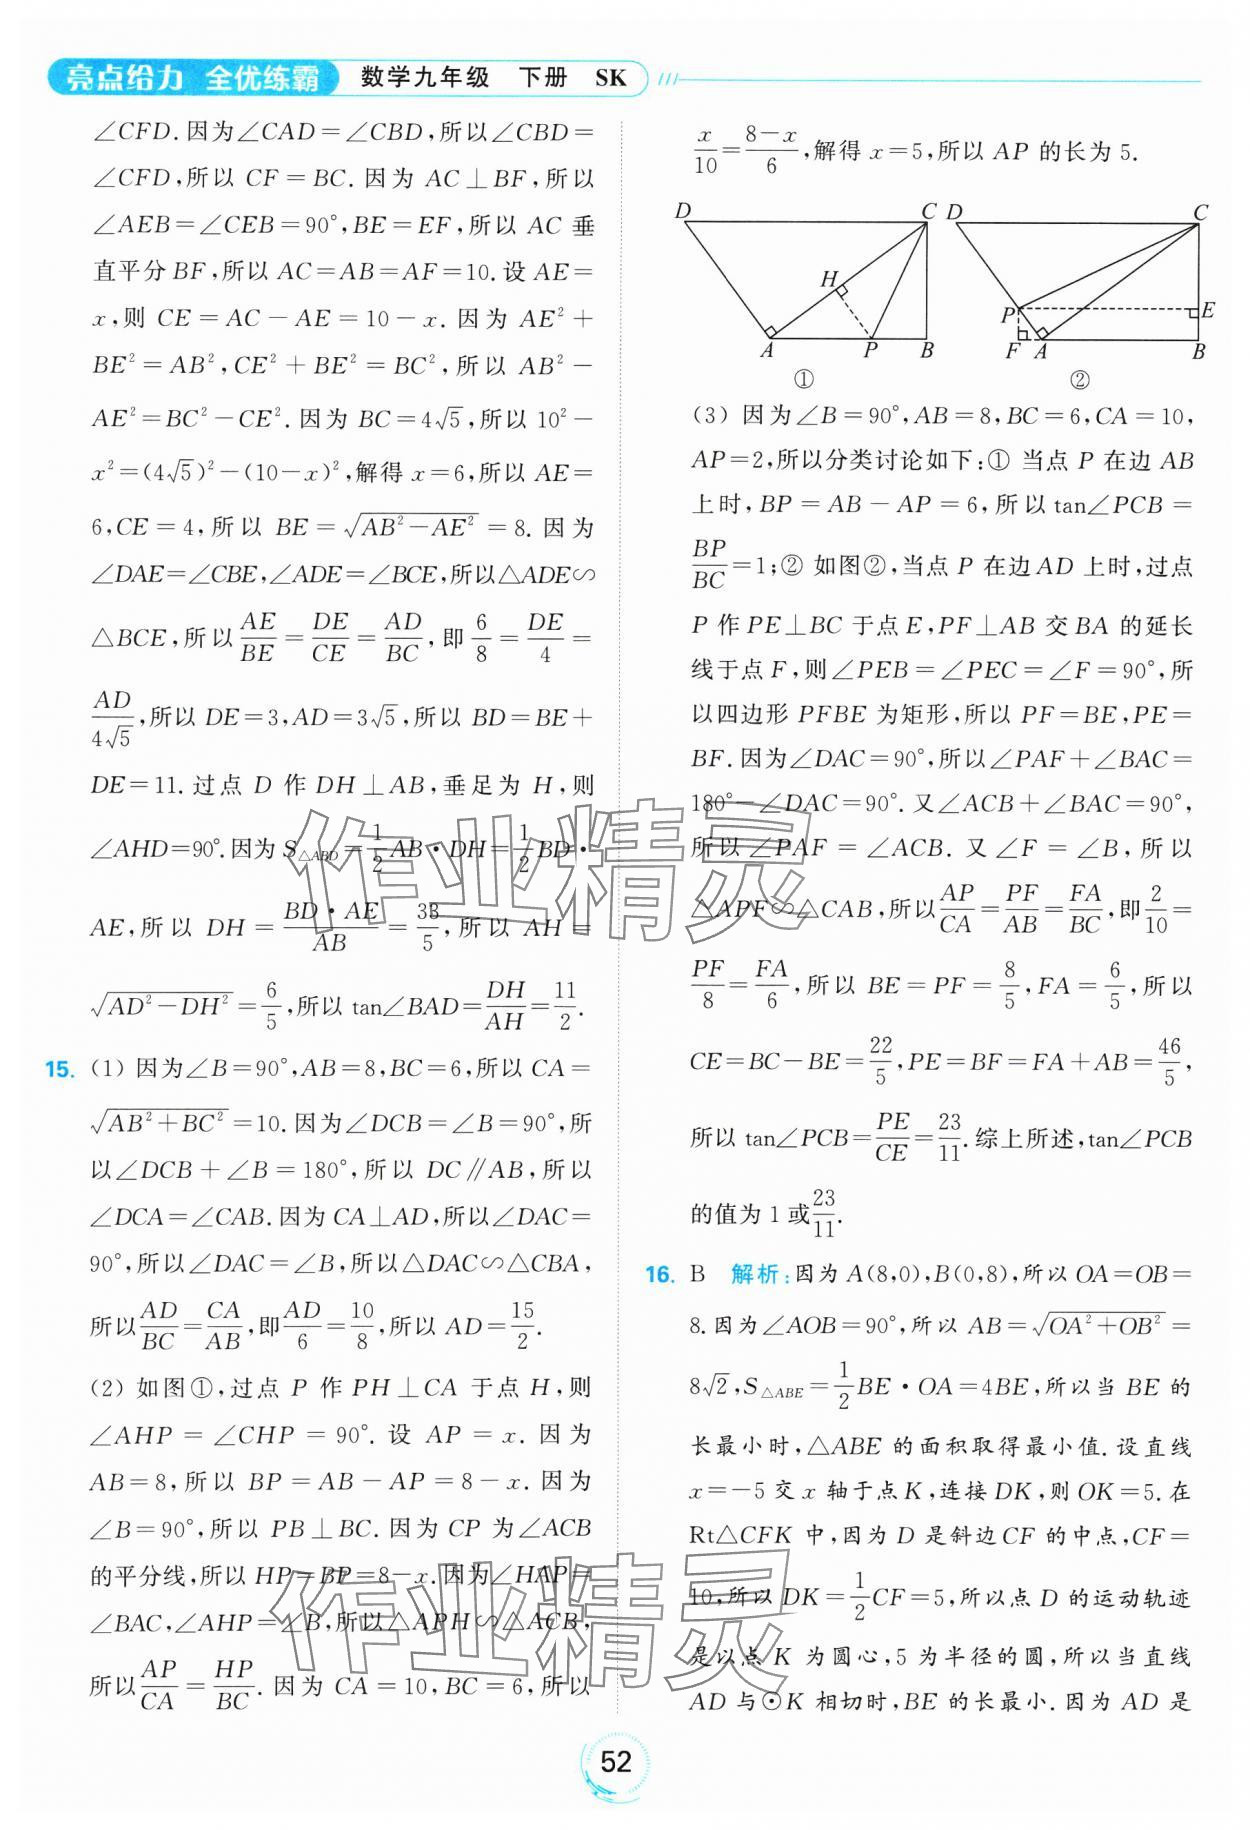 亮点给力 全优练霸 数学九年级 下册 SK
∠CFD.因为∠CAD=∠CBD,所以∠CBD=
∠CFD,所以 CF=BC.因为 AC⊥BF,所以
∠AEB=∠CEB=90°,BE=EF,所以 AC 垂
直平分 BF,所以 AC=AB=AF=10.设 AE=
x,则 CE=AC-AE=10-x.因为 AE²+
BE²=AB²,CE²+BE²=BC²,所以 AB²-
AE²=BC²-CE².因为 BC=4√5,所以 10²-
x²=(4√5)²-(10-x)²,解得 x=6,所以 AE=
6,CE=4,所以 BE=√(AB²-AE²)=8.因为
∠DAE=∠CBE,∠ADE=∠BCE,所以△ADE∽
△BCE,所以 AE/BE=DE/CE=AD/BC,即 6/8=DE/4=
AD/4√5,所以 DE=3,AD=3√5,所以 BD=BE+
DE=11.过点 D 作 DH⊥AB,垂足为 H,则
∠AHD=90°.因为 S△ABD=1/2 AB·DH=1/2 BD·
AE,所以 DH=BD·AE/AB=33/5,所以 AH=
√(AD²-DH²)=6/5,所以 tan∠BAD=DH/AH=11/2.
15. (1) 因为∠B=90°,AB=8,BC=6,所以 CA=
√(AB²+BC²)=10.因为∠DCB=∠B=90°,所
以∠DCB+∠B=180°,所以 DC∥AB,所以
∠DCA=∠CAB.因为 CA⊥AD,所以∠DAC=
90°,所以∠DAC=∠B,所以△DAC∽△CBA,
所以 AD/BC=CA/AB,即 AD/6=10/8,所以 AD=15/2.
(2) 如图①,过点 P 作 PH⊥CA 于点 H,则
∠AHP=∠CHP=90°.设 AP=x.因为
AB=8,所以 BP=AB-AP=8-x.因为
∠B=90°,所以 PB⊥BC.因为 CP 为∠ACB
的平分线,所以 HP=BP=8-x.因为∠HAP=
∠BAC,∠AHP=∠B,所以△APH∽△ACB,
所以 AP/CA=HP/BC.因为 CA=10,BC=6,所以
x/10=(8-x)/6,解得 x=5,所以 AP 的长为 5.
D C H A P B ①
D C P E F A B ②
(3) 因为∠B=90°,AB=8,BC=6,CA=10,
AP=2,所以分类讨论如下:① 当点 P 在边 AB
上时,BP=AB-AP=6,所以 tan∠PCB=
BP/BC=1;② 如图②,当点 P 在边 AD 上时,过点
P 作 PE⊥BC 于点 E,PF⊥AB 交 BA 的延长
线于点 F,则∠PEB=∠PEC=∠F=90°,所
以四边形 PFBE 为矩形,所以 PF=BE,PE=
BF.因为∠DAC=90°,所以∠PAF+∠BAC=
180°-∠DAC=90°.又∠ACB+∠BAC=90°,
所以∠PAF=∠ACB.又∠F=∠B,所以
△APF∽△CAB,所以 AP/CA=PF/AB=FA/BC,即 2/10=
PF/8=FA/6,所以 BE=PF=8/5,FA=6/5,所以
CE=BC-BE=22/5,PE=BF=FA+AB=46/5,
所以 tan∠PCB=PE/CE=23/11.综上所述,tan∠PCB
的值为 1 或 23/11.
16. B 解析:因为 A(8,0),B(0,8),所以 OA=OB=
8.因为∠AOB=90°,所以 AB=√(OA²+OB²)=
8√2,S△ABE=1/2 BE·OA=4BE,所以当 BE 的
长最小时,△ABE 的面积取得最小值.设直线
x=-5 交 x 轴于点 K,连接 DK,则 OK=5.在
Rt△CFK 中,因为 D 是斜边 CF 的中点,CF=
10,所以 DK=1/2 CF=5,所以点 D 的运动轨迹
是以点 K 为圆心,5 为半径的圆,所以当直线
AD 与⊙K 相切时,BE 的长最小.因为 AD 是
作业精灵
作业精灵
52